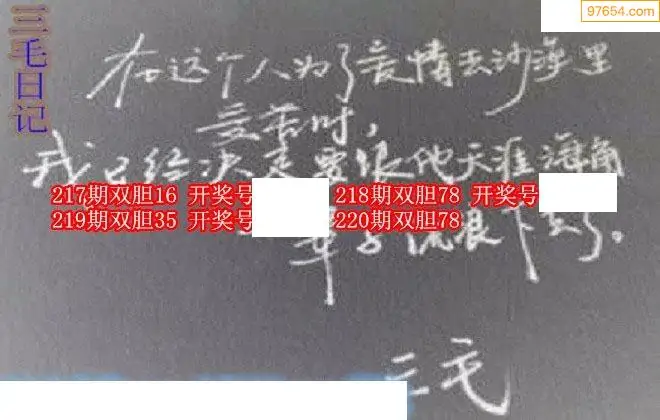 97654.com
三毛日记
在这个人为了爱情去沙漠里
受苦时，
我已经决定要跟他天涯海角
217期双胆16 开奖号
218期双胆78 开奖号
219期双胆35 开奖号
220期双胆78
辈子流浪下去了。
三毛